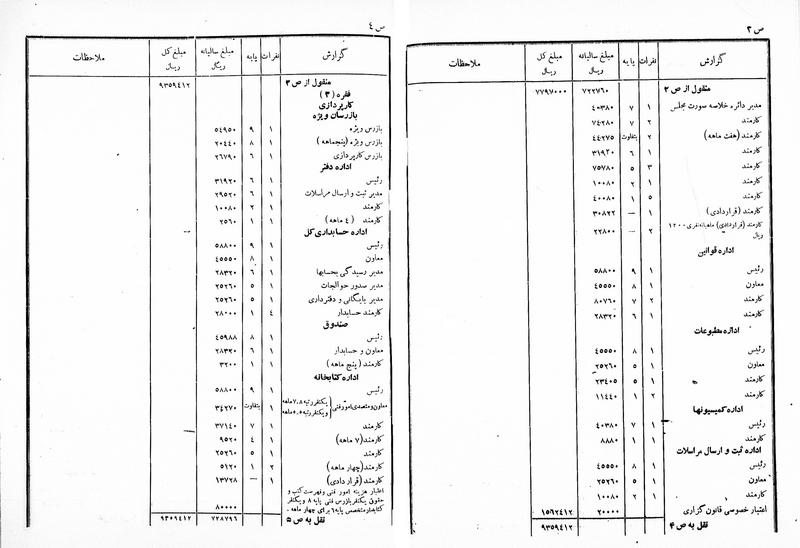 ص ۳
گزارش نفرات پایه مبلغ سالیانه ریال مبلغ کل ریال ملاحظات
منقول از ص ۲ ۷۲۲۷۶۰ ۷۷۹۷۰۰۰
مدیر دائره خلاصه صورت مجلس ۱ ۷ ۴۰۳۸۰
کارمند ۲ ۷ ۷۴۲۸۰
کارمند (هفت ماهه) ۲ متفاوت ۴۴۲۷۵
کارمند ۱ ۶ ۳۱۹۲۰
کارمند ۳ ۵ ۷۵۷۸۰
کارمند ۱ ۲ ۱۰۰۸۰
کارمند ۱ ۵ ۴۰۰۸۰
کارمند (قراردادی) ۱ — ۳۰۸۲۲
کارمند (قراردادی) ماهیانه نفری ۱۲۰۰ ریال ۲ — ۲۲۸۰۰
اداره قوانین
رئیس ۱ ۹ ۵۸۸۰۰
معاون ۱ ۸ ۴۵۵۵۰
کارمند ۲ ۷ ۸۰۷۶۰
کارمند ۱ ۶ ۲۸۳۲۰
اداره مطبوعات
رئیس ۱ ۸ ۴۵۵۵۰
معاون ۱ ۵ ۲۵۲۶۰
کارمند ۱ ۵ ۲۳۴۰۵
کارمند ۲ ۱ ۱۱۴۴۰
اداره کمیسیونها
رئیس ۱ ۷ ۴۰۳۸۰
کارمند ۱ ۱ ۸۸۸۰
اداره ثبت و ارسال مراسلات
رئیس ۱ ۸ ۴۵۵۵۰
معاون ۱ ۵ ۲۵۲۶۰
کارمند ۱ ۲ ۱۰۰۸۰
اعتبار خصوصی قانون گزاری ۲۰۰۰۰ ۱۵۶۲۴۱۲
نقل به ص ۴ ۹۳۵۹۴۱۲
ص ۴
گزارش نفرات پایه مبلغ سالیانه ریال مبلغ کل ریال ملاحظات
منقول از ص ۳ ۹۳۵۹۴۱۲
فقره (۳)
کارپردازی
بازرسان ویژه
بازرس ویژه ۱ ۹ ۵۴۹۵۰
بازرس ویژه (پنجماهه) ۱ ۸ ۲۰۴۴۰
بازرس کارپردازی ۱ ۶ ۲۶۷۹۰
اداره دفتر
رئیس ۱ ۶ ۳۱۹۲۰
مدیر ثبت و ارسال مراسلات ۱ ۶ ۲۹۵۲۰
کارمند ۱ ۲ ۱۰۰۸۰
کارمند (۴ ماهه) ۱ ۱ ۲۵۶۰
اداره حسابداری کل
رئیس ۱ ۹ ۵۸۸۰۰
معاون ۱ ۸ ۴۵۵۵۰
مدیر رسیدگی بحسابها ۱ ۶ ۲۸۳۲۰
مدیر صدور حوالجات ۱ ۵ ۲۵۲۶۰
مدیر بایگانی و دفترداری ۱ ۵ ۲۵۲۶۰
کارمند حسابدار ۴ ۱ ۲۸۰۰۰
صندوق
رئیس ۱ ۸ ۴۵۹۸۸
معاون و حسابدار ۱ ۶ ۲۸۳۲۰
کارمند (پنج ماهه) ۱ ۱ ۳۲۰۰
اداره کتابخانه
رئیس ۱ ۹ ۵۸۸۰۰
معاون و متصدی امور فنی (یکنفر رتبه ۷،۸ ماهه و یکنفر رتبه ۵،۸ ماهه ۱ متفاوت ۳۴۲۷۰
کارمند ۱ ۷ ۳۷۱۴۰
کارمند (۷ ماهه) ۱ ۴ ۹۵۲۰
کارمند ۱ ۵ ۲۵۲۶۰
کارمند (چهار ماهه) ۱ ۲ ۵۱۲۰
کارمند (قراردادی) ۱ — ۱۳۷۲۸
اعتبار هزینه امور فنی و فهرست کتب و
حقوق یکنفر بازرس فنی پایه ۸ و یکنفر
کتابدار متخصص پایه ۶ برای چهار ماهه. ۸۰۰۰۰
نقل به ص ۵ ۷۲۸۷۹۶ ۹۳۵۹۴۱۲